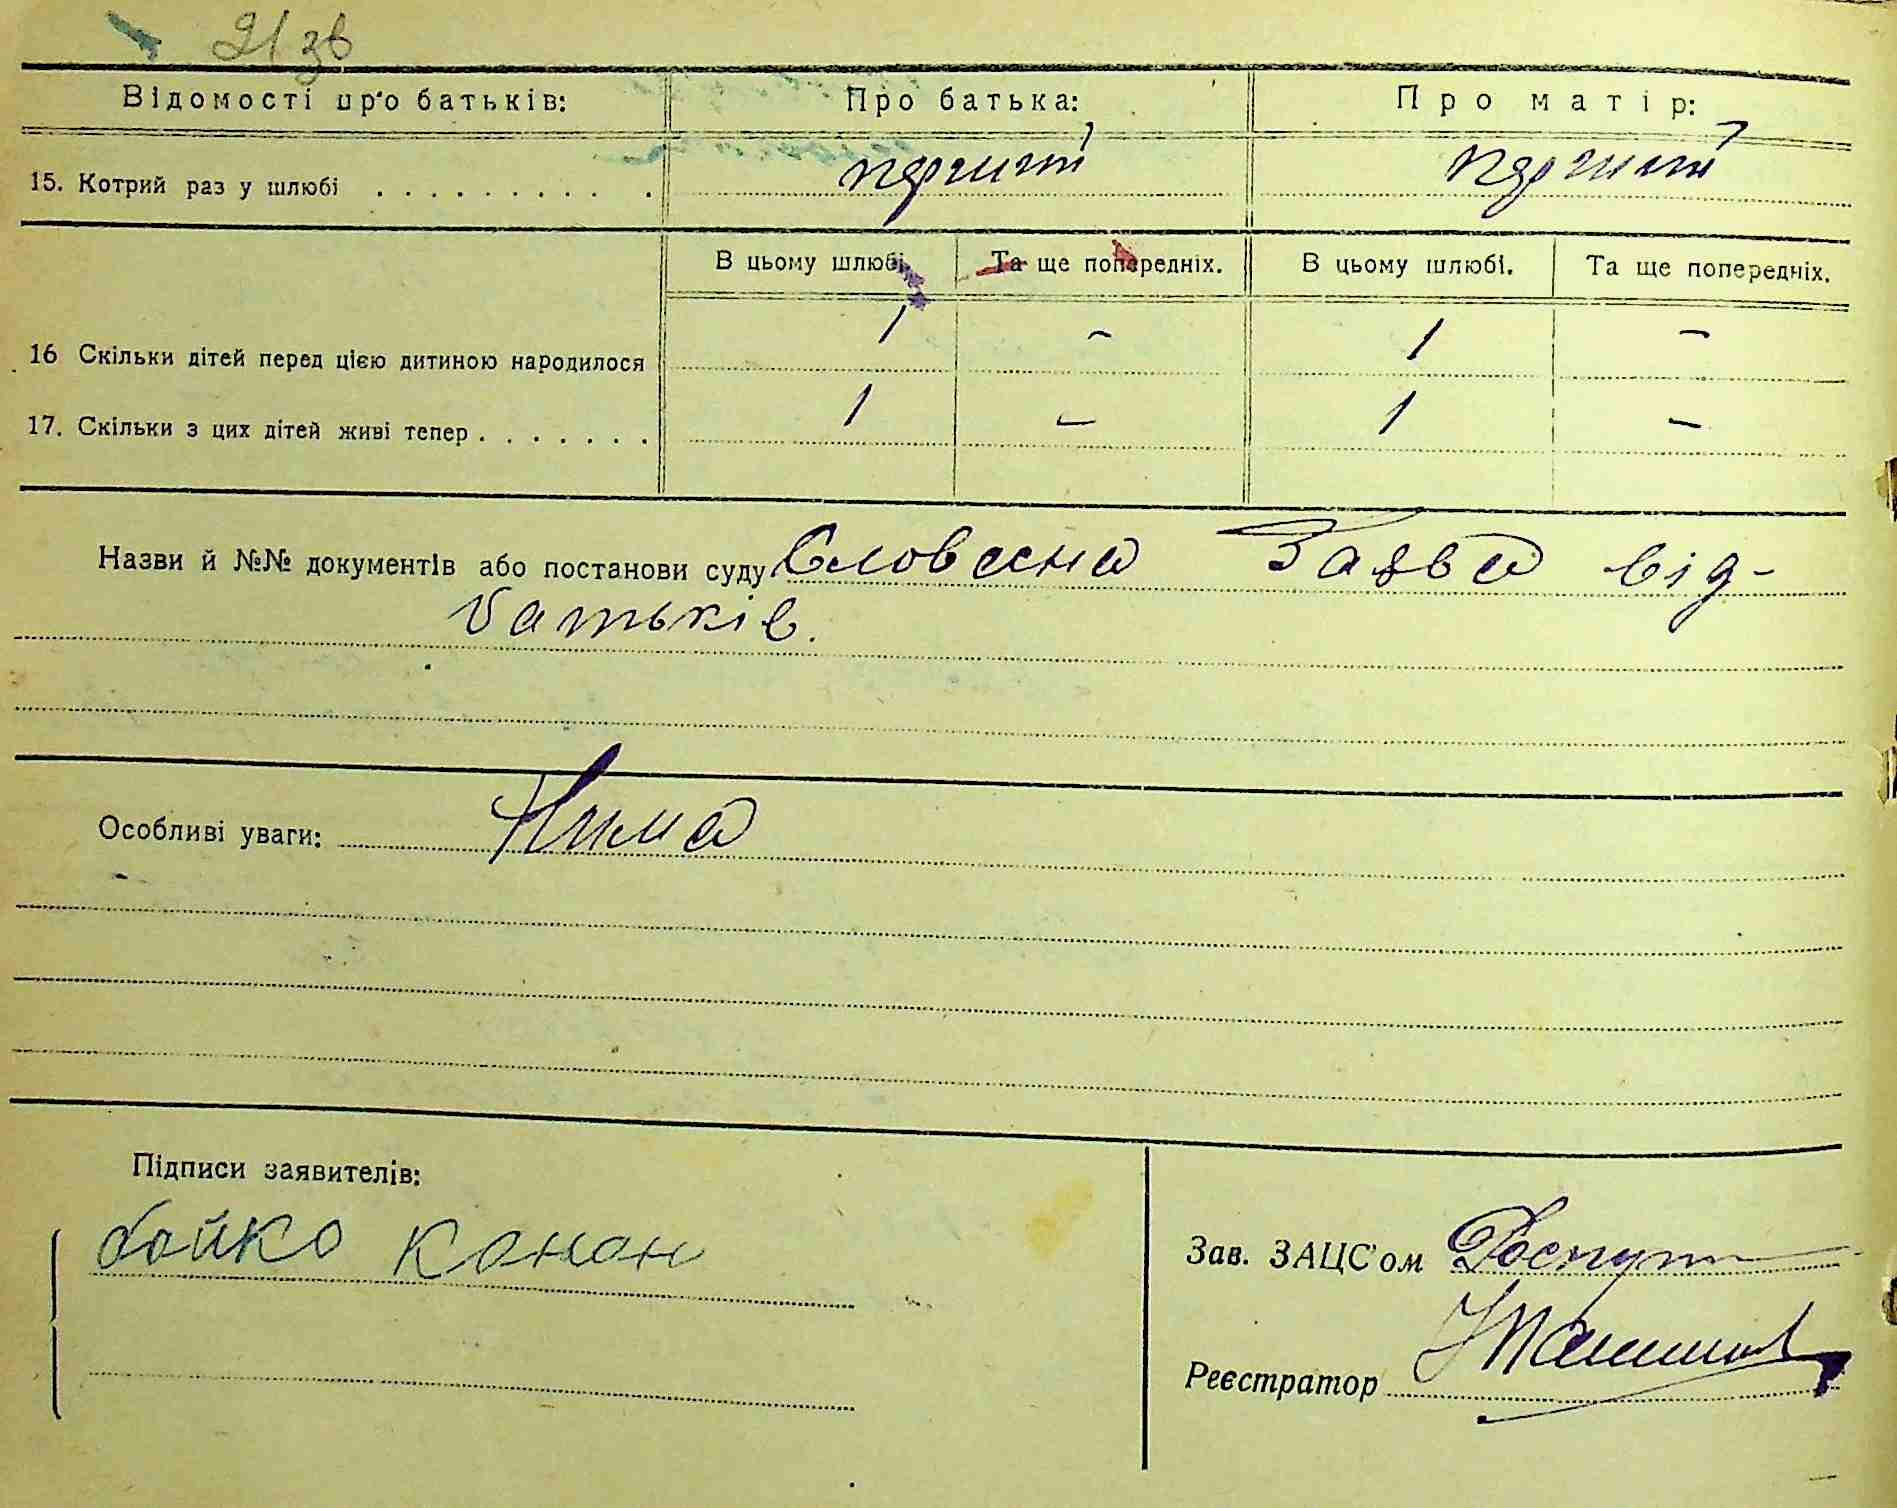 91 зв
Відомості про батьків: Про батька: Про матір:
15. Котрий раз у шлюбі . . . . . . . . . . перший перший
В цьому шлюбі. Та ще попередніх. В цьому шлюбі. Та ще попередніх.
16 Скільки дітей перед цією дитиною народилося 1 – 1 –
17. Скільки з цих дітей живі тепер . . . . . . . 1 – 1 –
Назви й №№ документів або постанови суду Словесна Заява від-
батьків.
Особливі уваги: Нима
Підписи заявителів:
бойко Конон
Зав. ЗАЦС'ом
Реєстратор